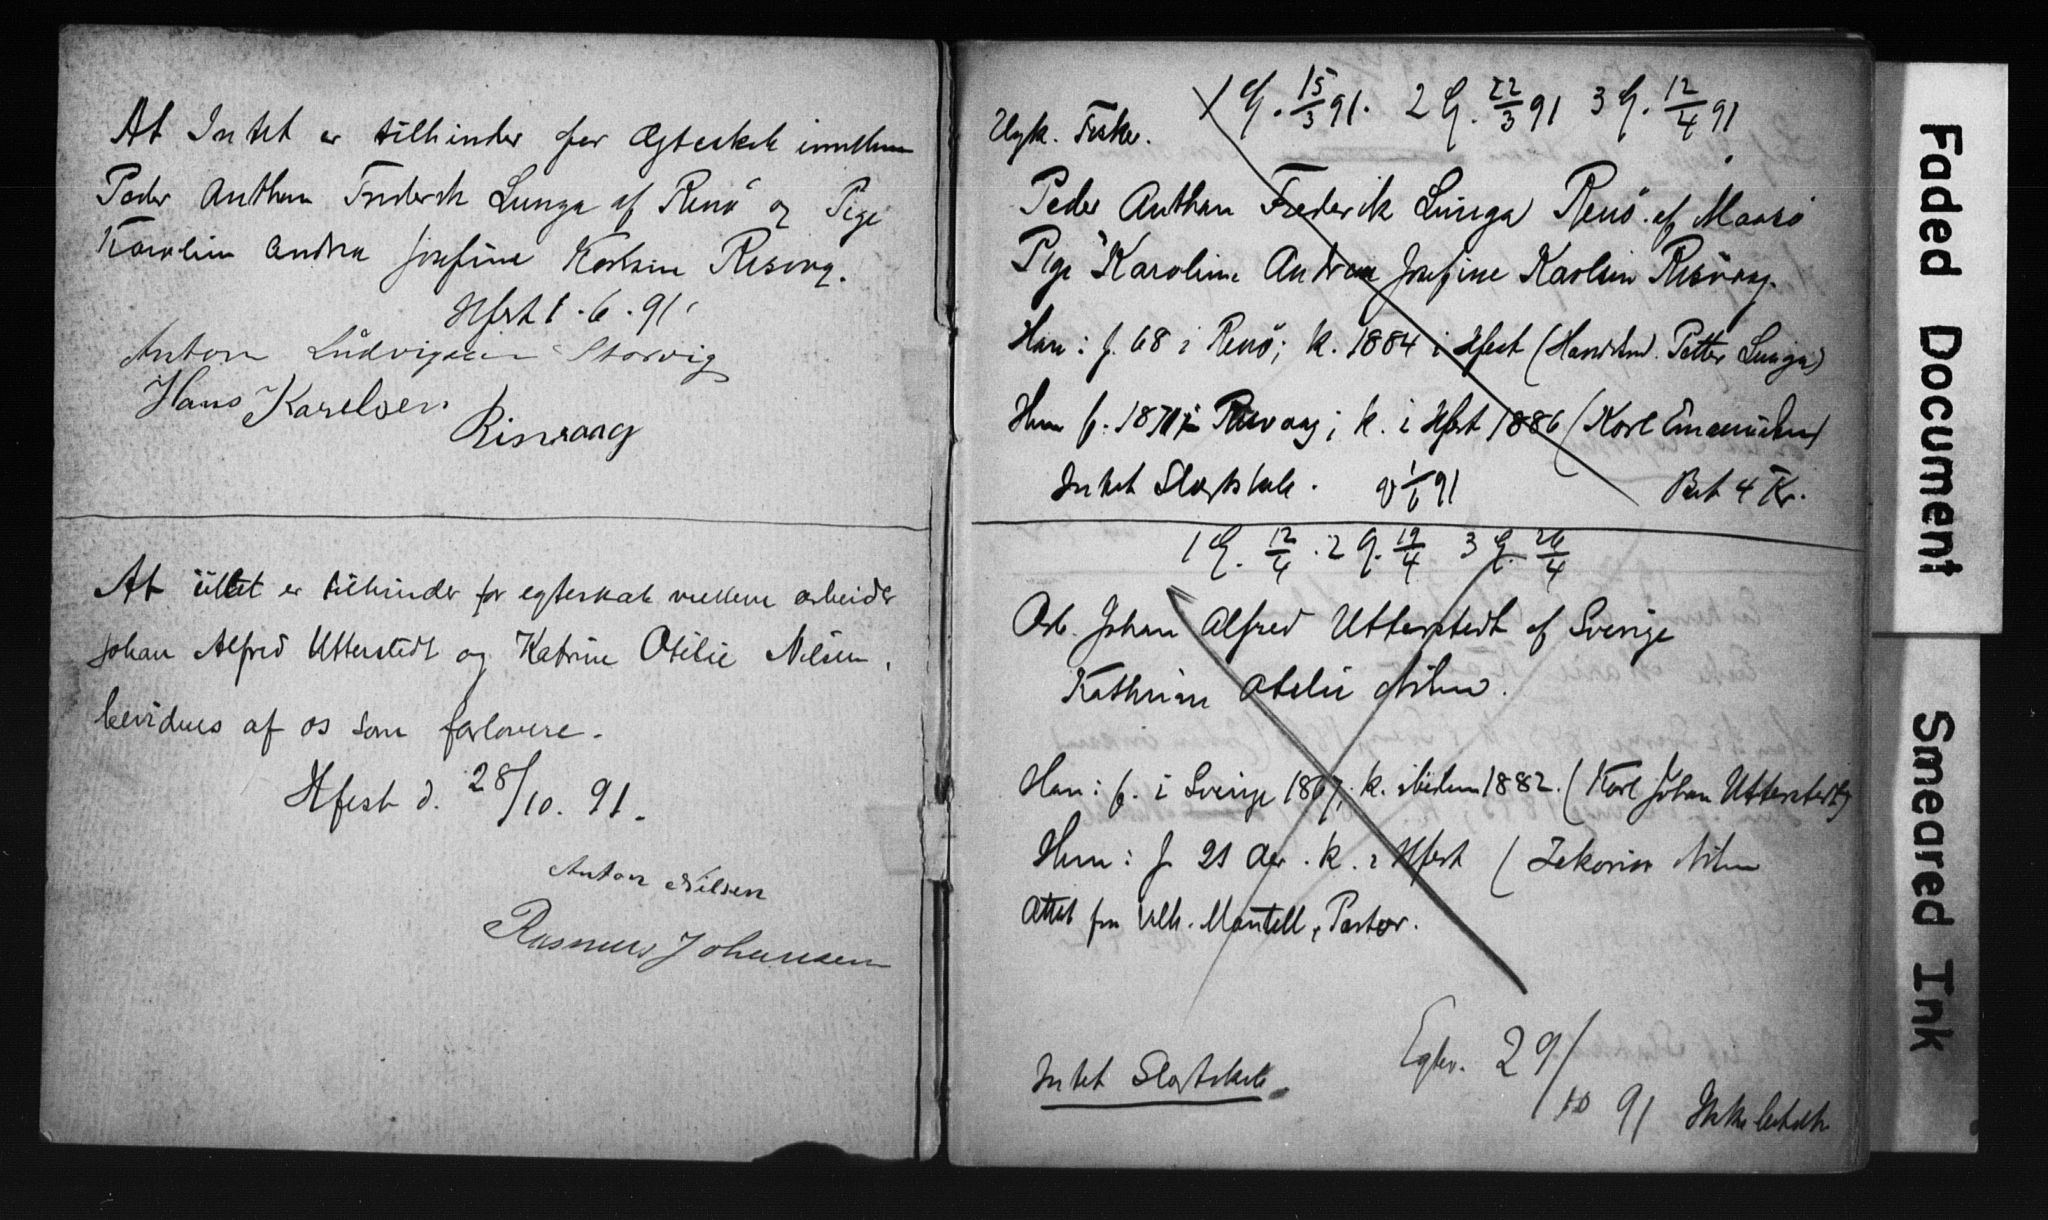 At Intet er tilhinder for Ægteskab imellem
Peder Anthon Frederik Lunga af Renö og Pige
Karoline Andrea Josefine Karlsen Risvag.
Hfest 1.6.91
Anton Ludvigsen Storvig
Hans Karelsen
Risvaag
At intet er tilhinder for egteskab mellem arbeider
Johan Alfred Utterstedt og Katrine Otilie Nilsen,
bevidnes af os som forlovere.
Hfest d. 28/10. 91.
Anton Nilsen
Rasmus Johansen
1 G. 15/3 91. 2 G. 22/3 91 3 G. 12/4 91
Ungk. Fisker.
Peder Anthon Frederik Lunga Renö af Maasö
Pige Karoline Andrea Josefine Karlsen Risvaag.
Han: f. 68 i Renö; k. 1884 i Hfest (Petter Lunga)
Hun f. 1871 i Risvaag; k. i Hfest 1886 (Karl Emanuelsen)
Intet Slægtskab. v 1/6 91 Bet 4 Kr.
1 G. 12/4. 2 G. 19/4 3 G. 26/4
Arb. Johan Alfred Utterstedt af Sverige
Kathrine Otelie Nilsen.
Han: f. i Sverige 1867; k. ibidem 1882. (Karl Johan Utterstedt)
Hun: f 21 Aar. k. i Hfest (Zakarias Nilsen
Attest fra Vilh. Mantell, Pastor.
Intet Slægtskab.
Egtev. 29/10 91 Ikke betalt
Faded Document
Smeared Ink